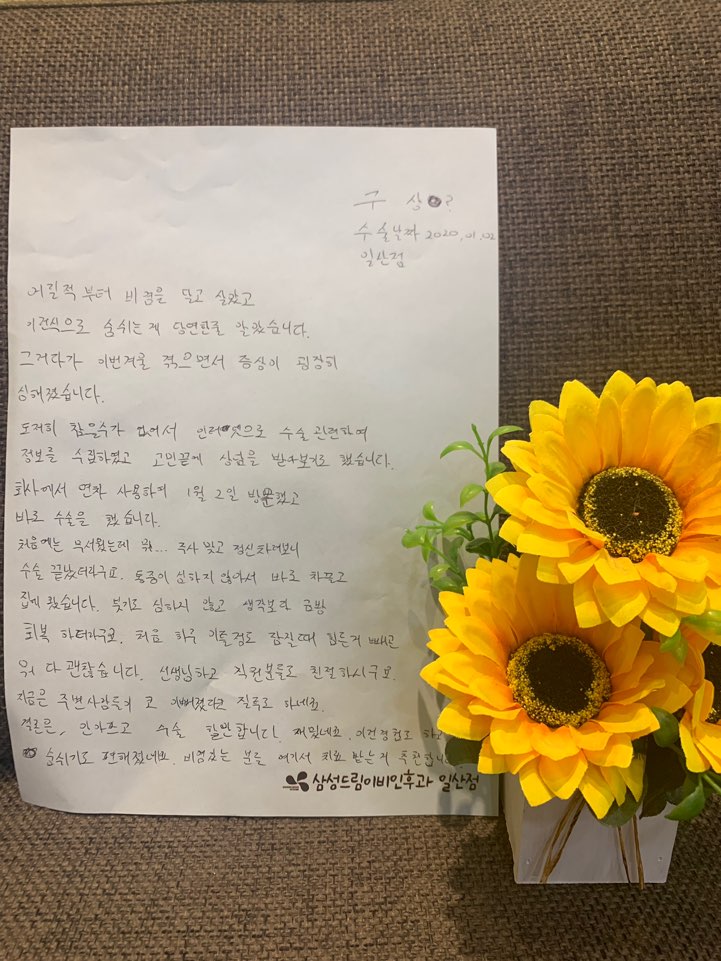 구 상?
수술날짜 2020.01.02
일산점
어릴적부터 비염을 달고 살았고
이런식으로 숨쉬는게 당연한줄 알았습니다.
그거다가 이번겨울 겪으면서 증상이 굉장히
심해졌습니다.
도저히 참을수가 없어서 인터넷으로 수술 관련하여
정보를 수집하였고 고민끝에 상담을 받아보기로 했습니다.
회사에서 연차 사용하여 1월 2일 방문했고
바로 수술을 했습니다.
처음에는 무서웠는데 뭐... 주사 맞고 정신차려보니
수술 끝났더라구요. 통증이 심하지 않아서 바로 차끌고
집에 왔습니다. 붓기도 심하지 않고 생각보다 금방
회복 하더라구요. 처음 하루 이틀정도 잠잘때 힘든거 빼곤
뭐 다 괜찮습니다. 선생님하고 직원분들도 친절하시구요.
지금은 주변사람들이 코 이뻐졌다고 질투도 하네요.
결론은, 안아프고 수술 할만합니다. 재밌네요. 이런경험도 하고
숨쉬기도 편해졌네요. 비염있는 분들 여기서 치료 받는거 추천합니다
삼성드림이비인후과 일산점